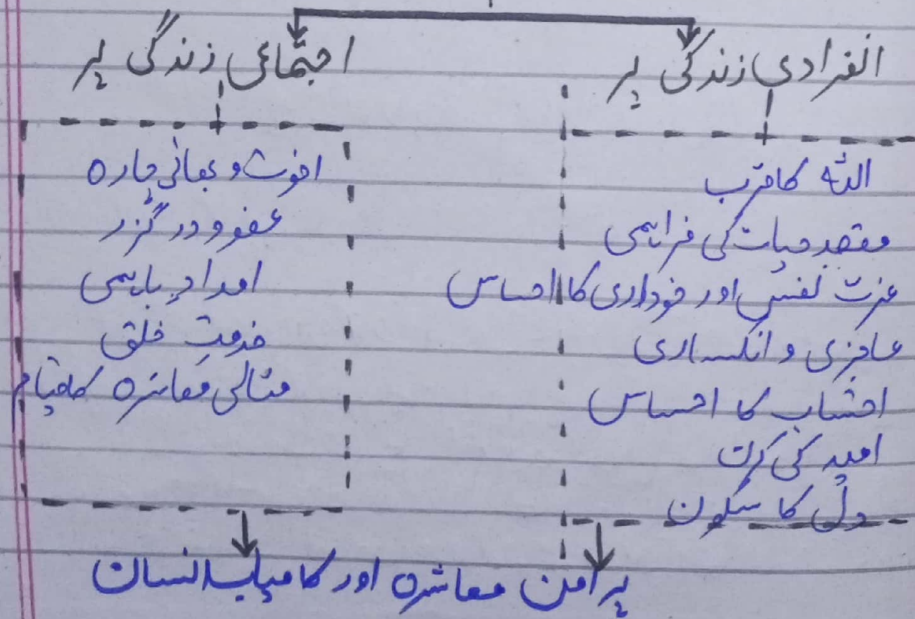 انفرادی زندگی پر
اجتماعی زندگی پر
اللہ کا قرب
مقصد حیات کی فراہمی
عزت نفس اور خودداری کا احساس
عاجزی و انکساری
احتساب کا احساس
امید کی کرن
دل کا سکون
اخوت و بھائی چارہ
عفو و در گزر
امدادِ باہمی
خدمتِ خلق
مثالی معاشرہ کا قیام
پر امن معاشرہ اور کامیاب انسان